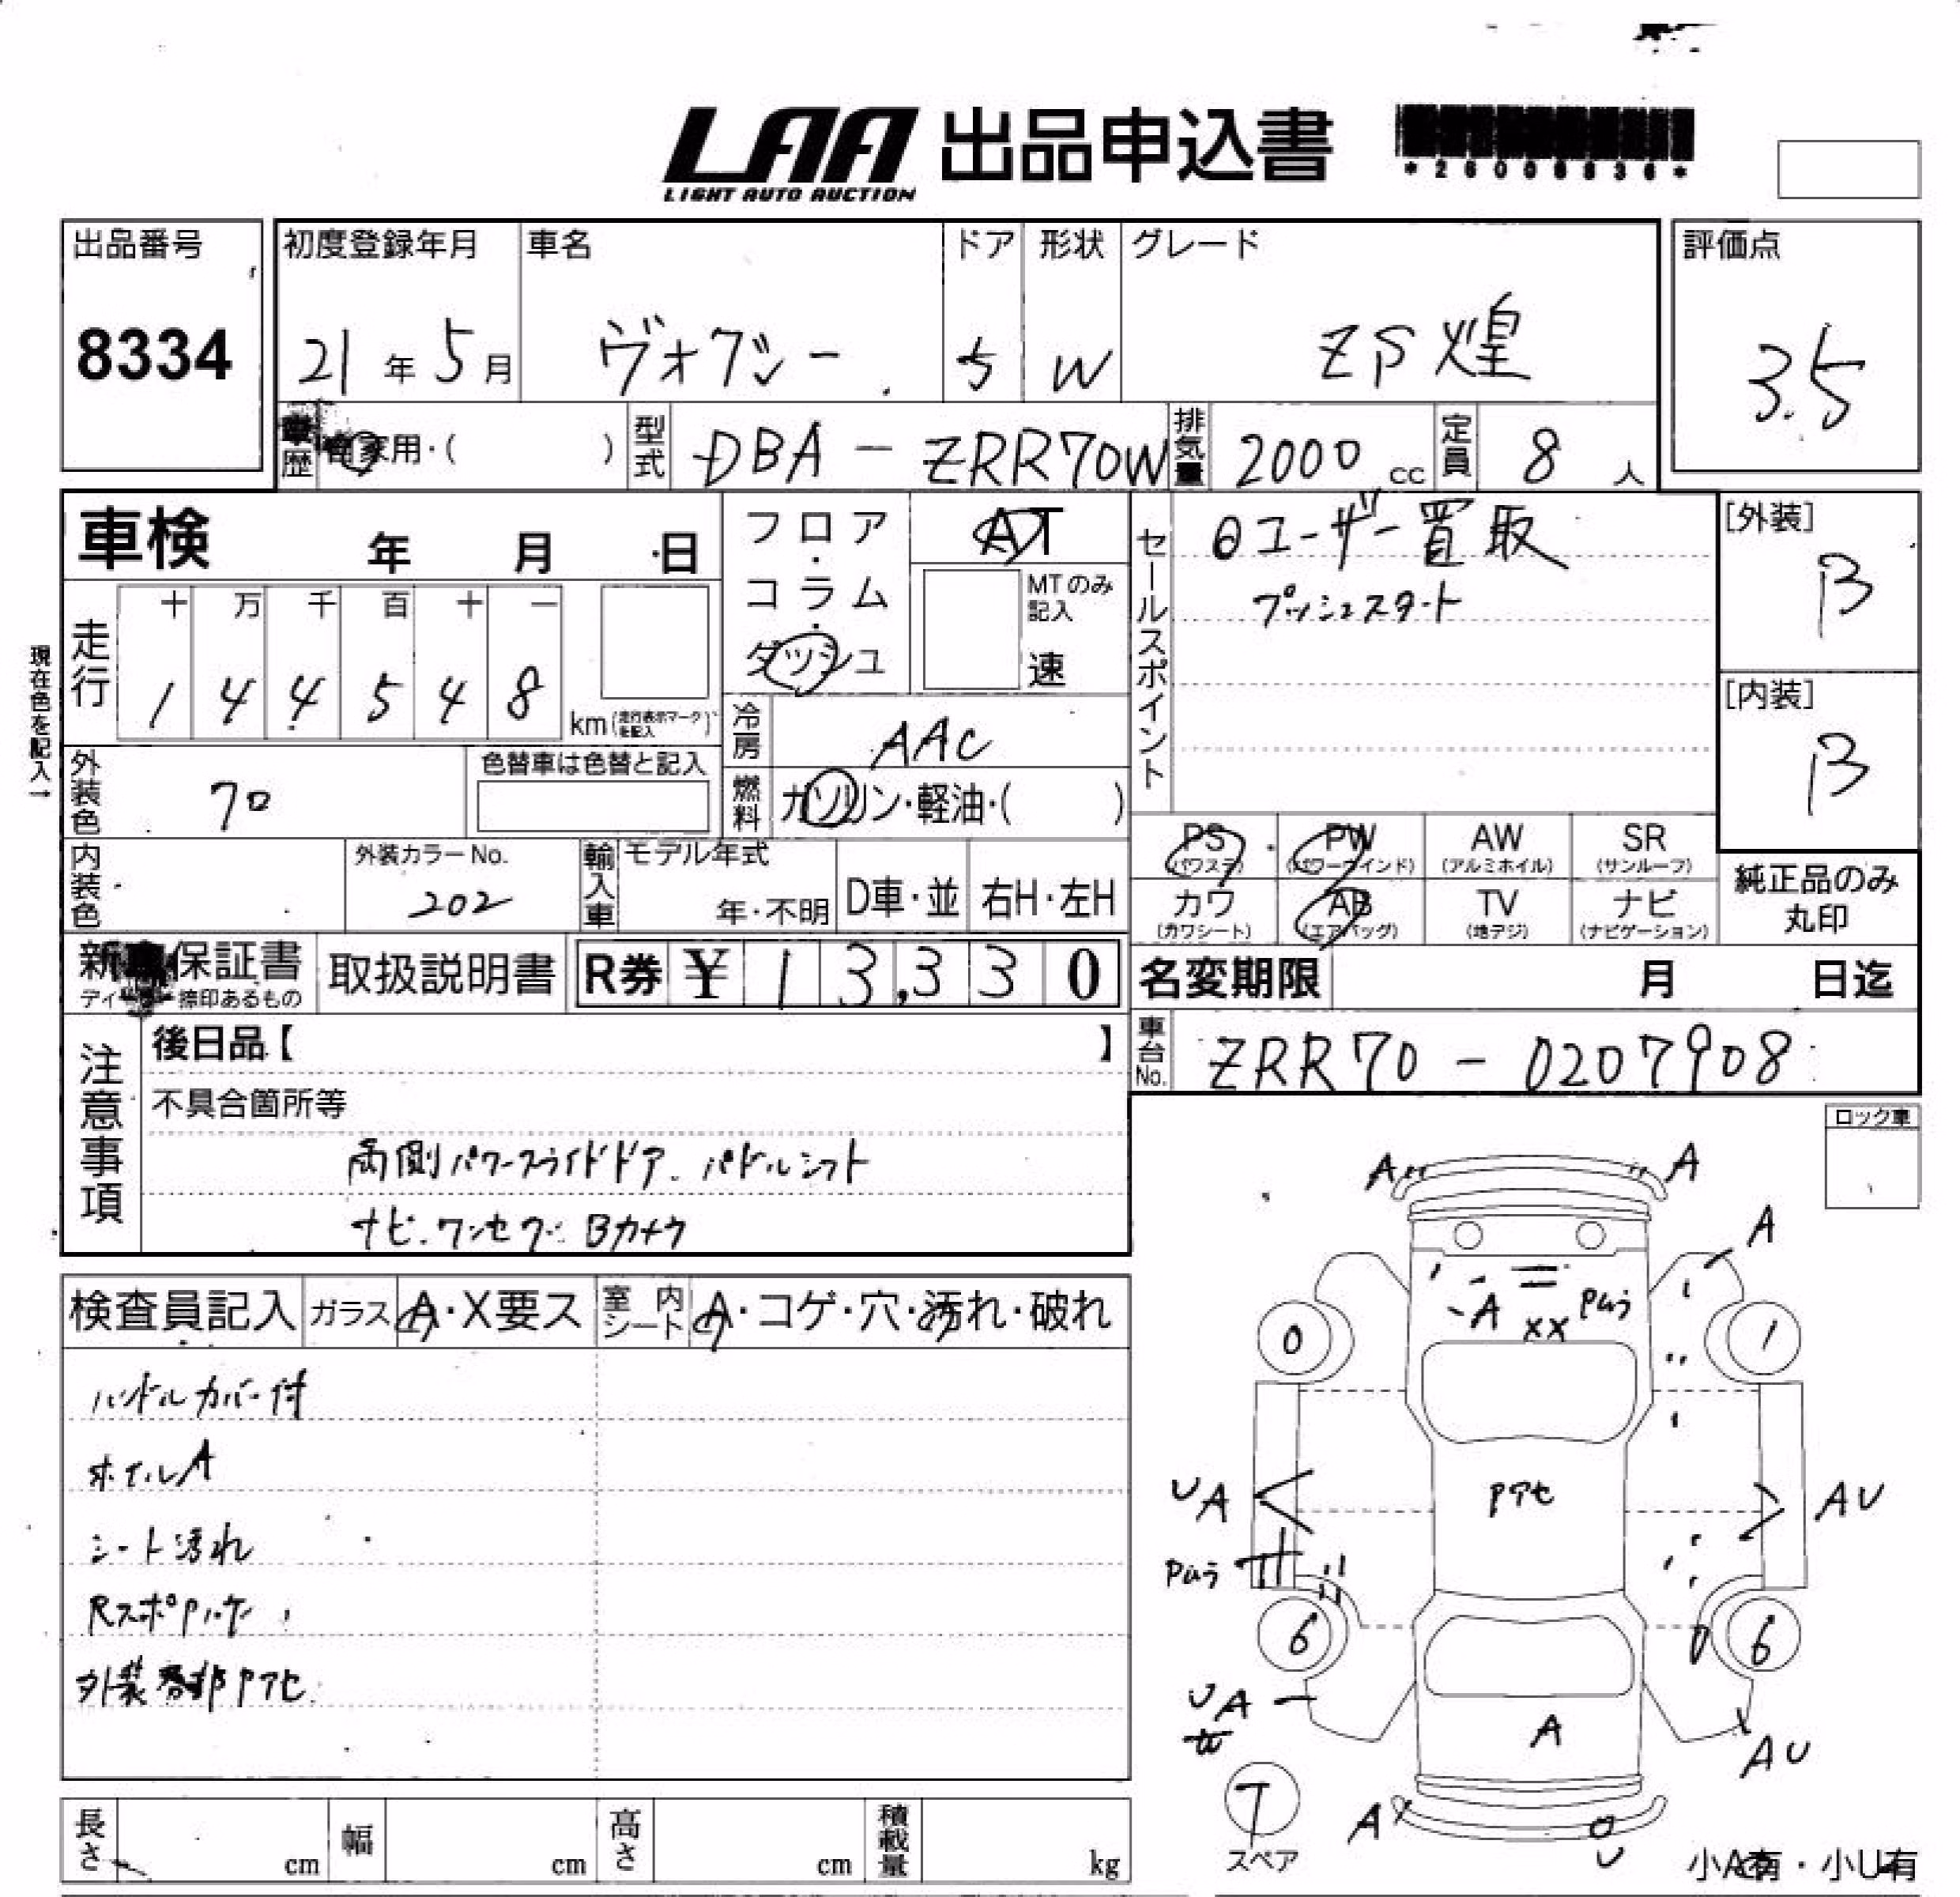 LAA 出品申込書
LIGHT AUTO AUCTION
出品番号 初度登録年月 車名 ドア 形状 グレード 評価点
8334 21年 5月 ヴォクシー 5 W ZS 煌 3.5
車歴 自家用・( ) 型式 DBA - ZRR70W 排気量 2000 cc 定員 8 人
車検 年 月 日
フロア・コラム・ダッシュ AT
MTのみ記入 速
セールスポイント
ユーザー買取
プッシュスタート
[外装] B
[内装] B
現在色を記入→
走行 十 万 千 百 十 一
1 4 4 5 4 8 km (走行表示マークを記入)
冷房 AAC
外装色 クロ 色替車は色替と記入
燃料 ガソリン・軽油・( )
PS (パワステ) PW (パワーウインド) AW (アルミホイル) SR (サンルーフ)
カワ (カワシート) AB (エアバッグ) TV (地デジ) ナビ (ナビゲーション)
純正品のみ丸印
内装色 外装カラーNo. 202 輸入車 モデル年式 年・不明 D車・並 右H・左H
保証書 取扱説明書 R券 ¥ 1 3,3 3 0
捺印あるもの
名変期限 月 日迄
車台No. ZRR70 - 0207908
注意事項
後日品【 】
不具合箇所等
両側パワースライドドア. パドルシフト
ナビ.ワンセグ. Bカメラ
ロック車
検査員記入 ガラス A・X要ス 室内シート A・コゲ・穴・汚れ・破れ
ハンドルカバー付
ホイルA
シート汚れ
RスポPハゲ
外装各部Pアセ
A A
A
A XX Pムラ
0 1
UA Pアセ AU
Pムラ
6 6
UA
A AU
T
スペア
A U
小A有・小U有
長さ cm 幅 cm 高さ cm 積載量 kg